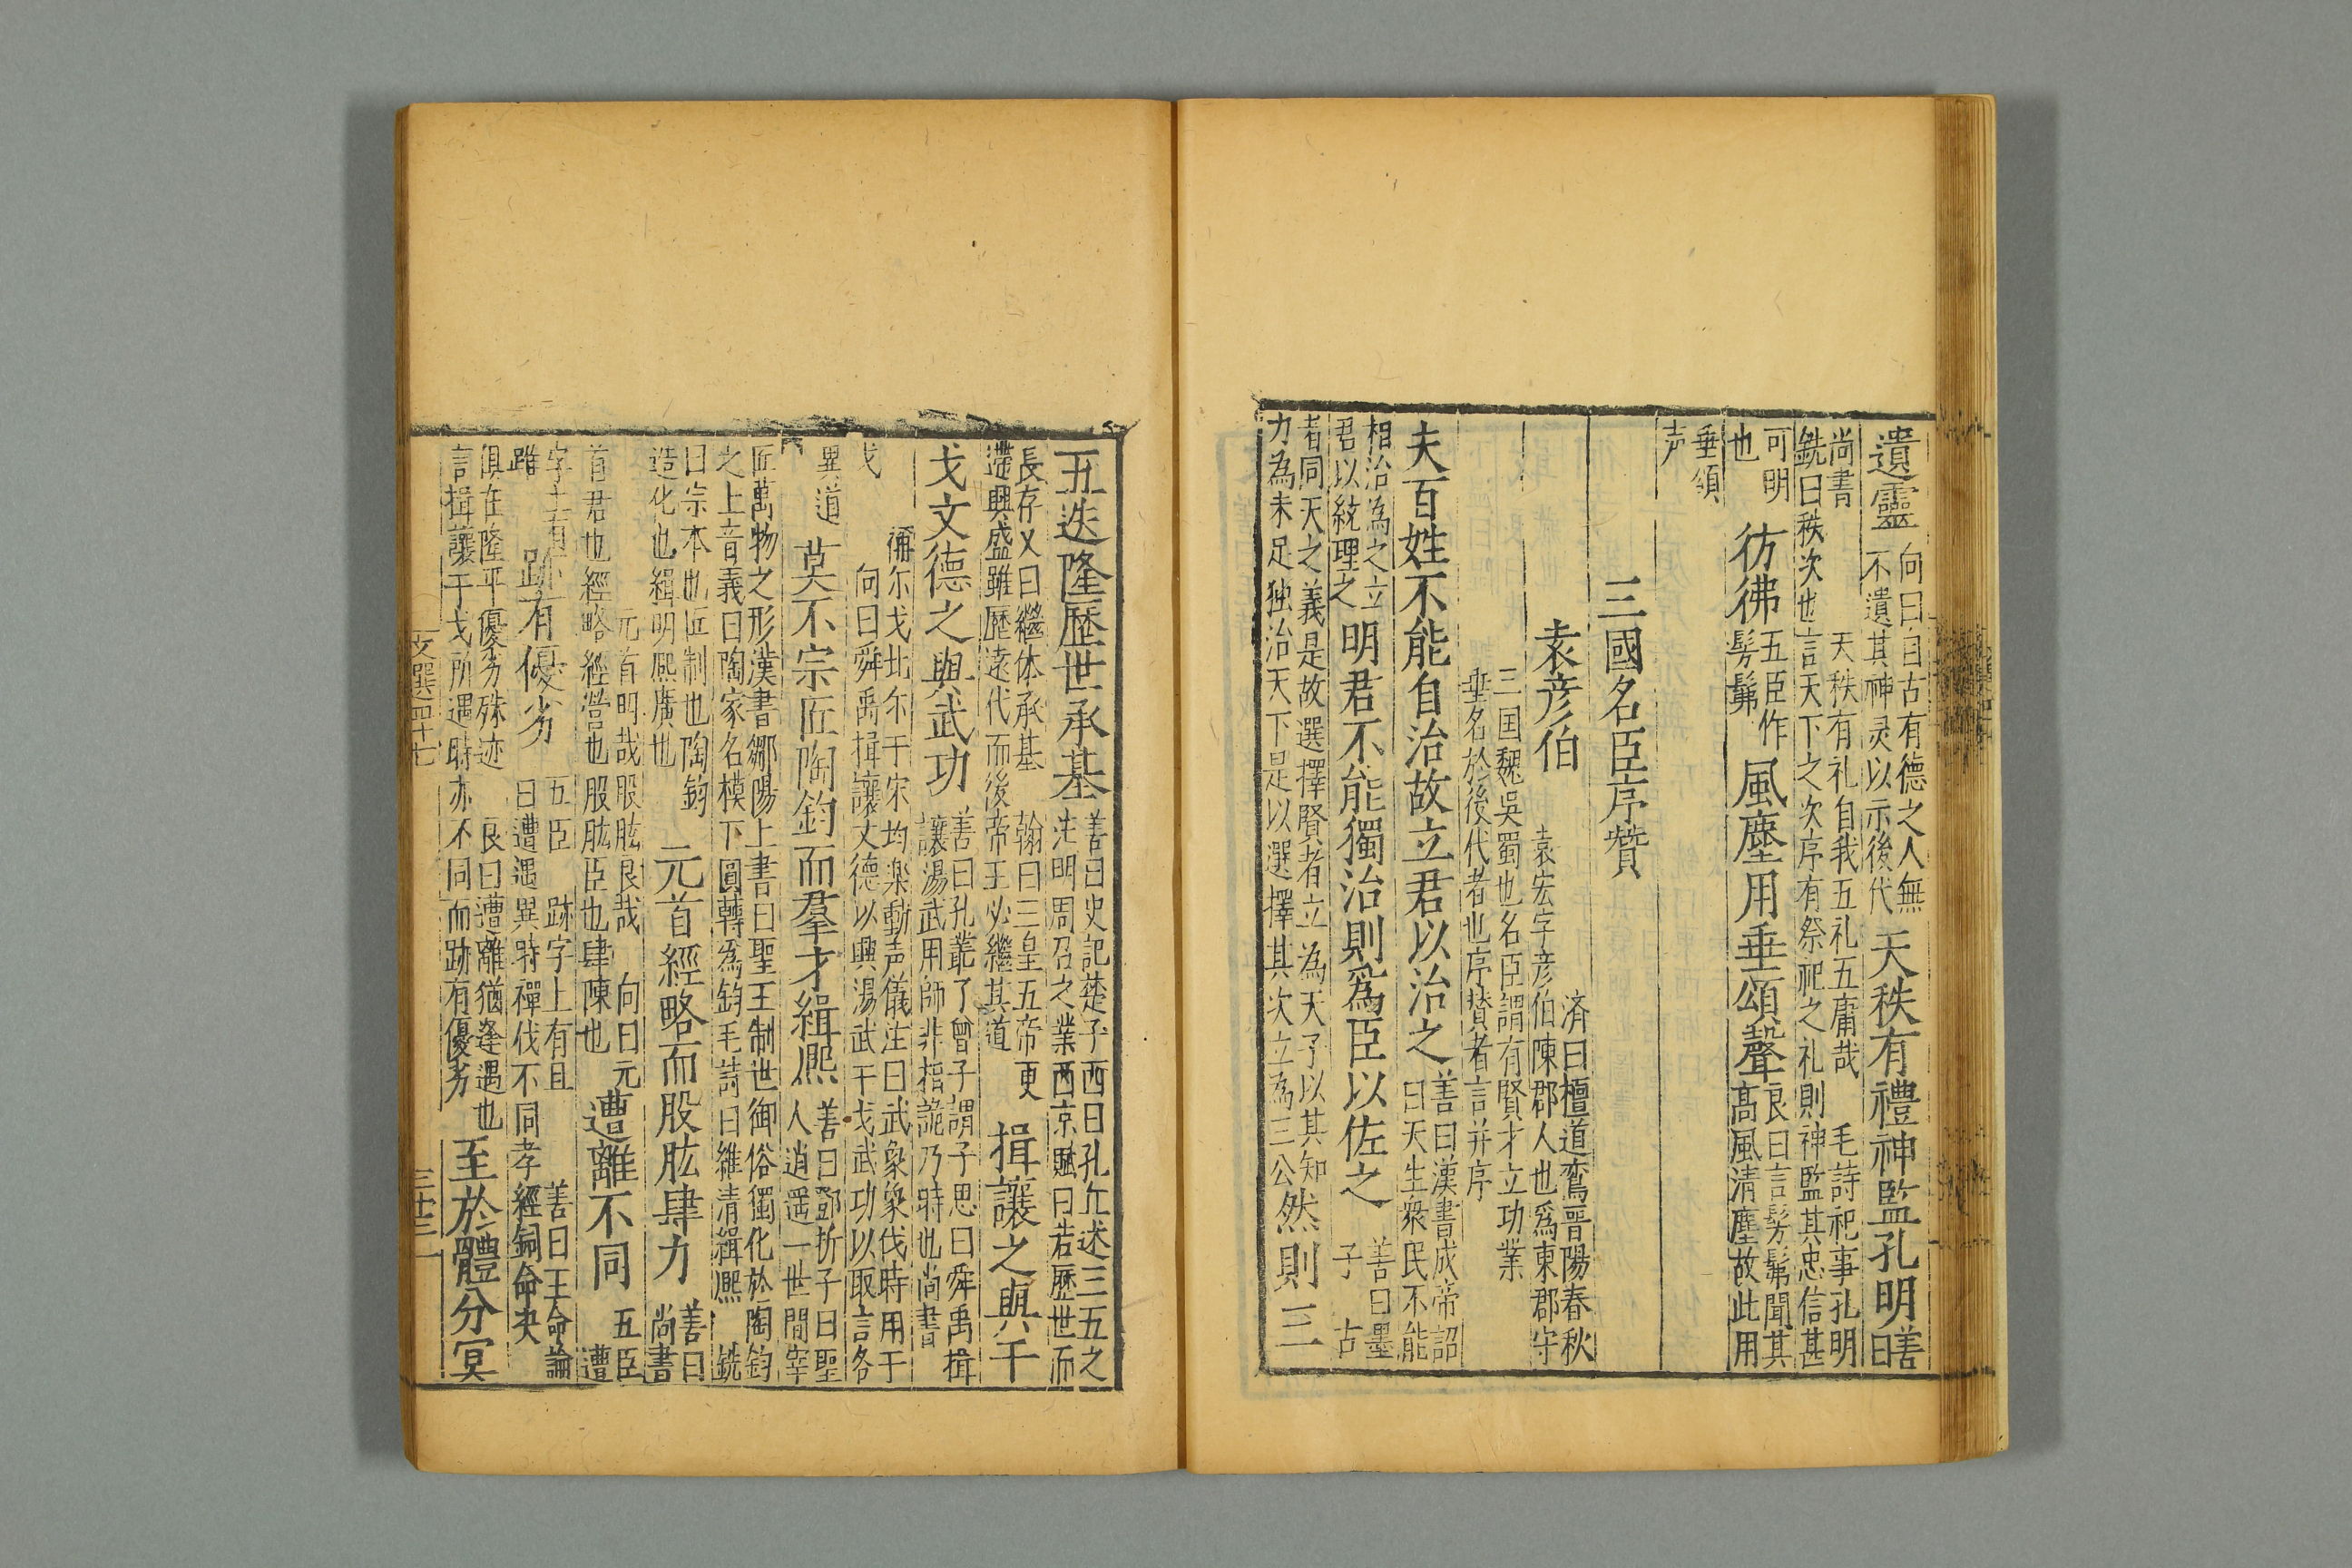 遺靈向曰自古有德之人無不遺其神灵以示後代天秩有禮神監孔明善曰
尚書天秩有礼自我五礼五庸哉毛詩祀事孔明
銑曰秩次也言天下之次序有祭祀之礼則神監其忠信甚
可明也彷彿五臣作髣髴風塵用垂頌聲良曰言髣髴聞其髙風清塵故此用
垂頌声
三國名臣序贊
袁彦伯
袁宏字彦伯陳郡人也爲東郡守
済曰檀道鸞晋陽春秋
三国魏吳蜀也名臣謂有賢才立功業
垂名於後代者也序賛者言并序
夫百姓不能自治故立君以治之善曰漢書成帝詔曰天生衆民不能
相治為之立君以統理之明君不能獨治則爲臣以佐之善曰墨子古
者同天之義是故選擇賢者立為天子以其知
力為未足独治天下是以選擇其次立為三公然則三
五迭隆歷世承基善曰史記楚子西曰孔丘述三五之法明周召之業西京賦曰若歷世而
長存又曰繼体承基翰曰三皇五帝更
遞興盛雖歷遠代而後帝王必繼其道揖讓之與干
戈文德之與武功善曰孔叢子曾子謂子思曰舜禹揖讓湯武用師非相詭乃時也尚書
稱尔戈北尔干宋均楽動声儀注曰武象象伐時用干
戈向曰舜禹揖讓文德以興湯武干戈武功以取言各
異道莫不宗匠陶鈞而羣才緝熈善曰鄧折子曰聖人逍遥一世間宰
匠萬物之形漢書鄒陽上書曰聖王制世御俗獨化於陶鈞
之上音義曰陶家名模下圓轉爲鈞毛詩曰維清緝熈銑
曰宗本也匠制也陶鈞造化也緝明熈廣也元首經略而股肱肆力善曰尚書
元首明哉股肱良哉向曰元
首君也經略經營也股肱臣也肆陳也遭離不同五臣遭
字上有且跡有優劣五臣跡字上有且善曰王命論
雖曰遭遇異時禪伐不同孝經鉤命决
俱在隆平優劣殊迹良曰遭離猶逢遇也
言揖讓干戈所遇時亦不同而跡有優劣至於體分冥
文選四十七
三十三